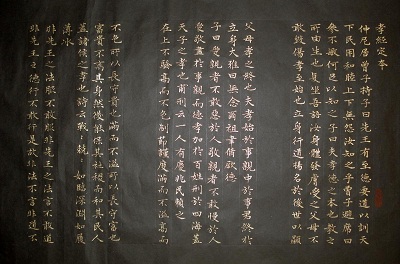 孝經定本
仲尼居曾子持子曰先王有至德要道以訓天
下民用和睦上下無怨汝知之乎曾子避席曰
參不敏何足以知之子曰夫孝德之本也教之
所由生也復坐吾語汝身體髮膚受之父母不
敢毀傷孝至始也立身行道揚名於後世以顯
父母孝之終也夫孝始於事親中於事君終於
立身大雅曰無念爾祖聿脩厥德
子曰愛親者不敢惡於人敬親者不敢慢於人
愛敬盡於事親而德孝加於百姓刑於四海蓋
天子之孝也甫刑云一人有慶兆民賴之
在上不驕高而不危制節謹度滿而不溢高而
不危所以長守貴也滿而不溢所以長守富也
富貴不離其身然後能保其社稷而和其民人
蓋諸侯之孝也詩云戰〻兢〻如臨深淵如履
薄冰
非先王之法服不敢服非先王之法言不敢道
非先王之德行不敢行是故非法不言非道不